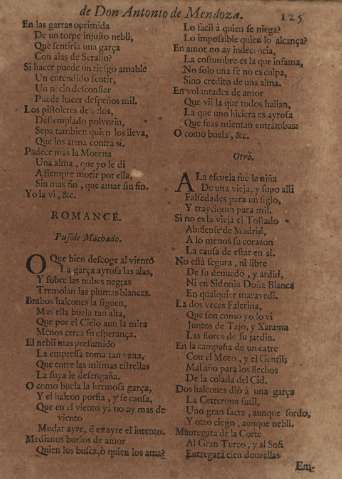 de Don Antonio de Mendoza.
125
En las garras oprimida
De un torpe injusto nebli,
Que sentiria una garça
Con alas de Serafin?
Si hacer puede un riesgo amable
Un entendido sentir,
Un necio desconsier
Puede hacer despeños mil.
Los pistoletes de
Destemplado polvorin,
Sepa tambien quien los lleva,
Que los arma contra si.
Padecer mas la Muerta
Una alma, que yo le di
A siempre morir por ella,
Sin mas fin, que amar sin fin.
Yo la vi, &c.
ROMANCE.
Pusole Machado.
O Que bien descoge al viento
La garça ayrosa las alas,
Y sobre las nubes negras
Tremolan las plumas blancas.
Brabos halcones la siguen,
Mas ella buela tan alta,
Que por el Cielo aun la mira
Menos cerca su esperança.
El nebli mas presumido
La empressa toma tan vana,
Que entre las mismas estrellas
La suya le desengaña.
O como buela la hermosa garça,
Y el halcon porfia, y se cansa,
Que en el viento ya no ay mas de
viento
Mudar ayre, ô es ayre el intento.
Medianos buelos de amor
Quien los busca, ô quien los ama?
Lo facil à quien se niega?
Lo impossible quien lo alcança?
En amor no ay indecencia,
La costumbre es la que infama,
No solo una fe no es culpa,
Sino credito de una alma.
En voluntades de amor
Que vil la que todos hallan,
La que uno hiciera es ayrosa
Que mas intentan entrambas
O como buela, &c.
Otro.
A La escuela fue la niña
De una vieja, y supo alli
Falsedades para un siglo,
Y trayciones para mil.
Si no es la vieja el Tostado
Abulense de Madrid,
A lo menos su coraçon
La causa de estar en al.
No està segura, ni libre
De su denuedo, y ardid,
Ni en Sidonia Doña Blanca
En qualquier maravedi.
La dos veces Falerina,
Que son como yo lo vi
Juntos de Tajo, y Xarama
Las flores de su jardin.
En la campaña de un catre
Con el Moro, y el Gentil,
Mal año para los fiechos
De la colada del Cid.
Dos halcones diò à una garça
La Cetrerona sutil,
Uno gran sacra, aunque sordo,
Y otro ciego, aunque nebli.
Mantegata de la Corte
Al Gran Turco, y al Sofi
Entregarà cien doncellas
Em-